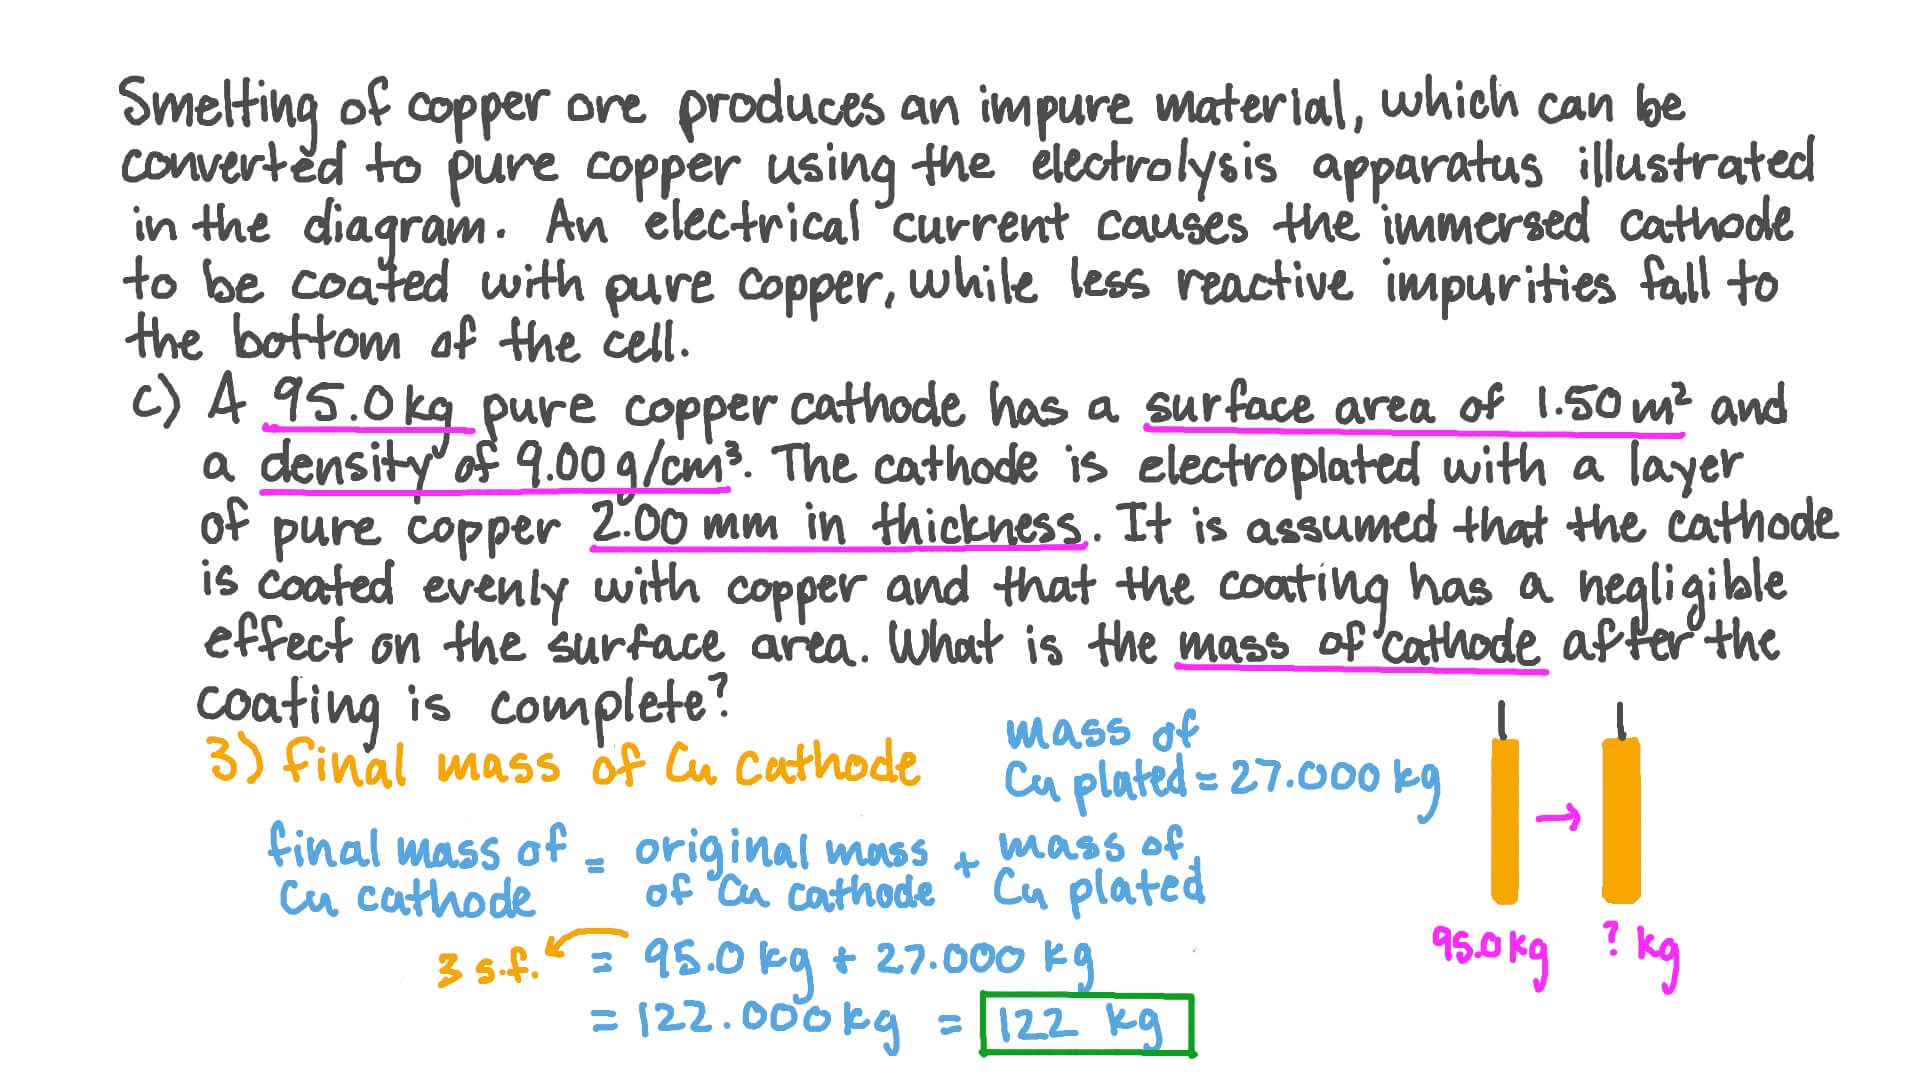 Smelting of copper ore produces an impure material, which can be
converted to pure copper using the electrolysis apparatus illustrated
in the diagram. An electrical current causes the immersed cathode
to be coated with pure copper, while less reactive impurities fall to
the bottom of the cell.
c) A 95.0 kg pure copper cathode has a surface area of 1.50 m² and
a density of 9.00 g/cm³. The cathode is electroplated with a layer
of pure copper 2.00 mm in thickness. It is assumed that the cathode
is coated evenly with copper and that the coating has a negligible
effect on the surface area. What is the mass of cathode after the
coating is complete?
3) final mass of Cu cathode
mass of
Cu plated = 27.000 kg
final mass of = original mass + mass of
Cu cathode of Cu cathode Cu plated
3 s.f. = 95.0 kg + 27.000 kg
= 122.000 kg = 122 kg
→
95.0 kg ? kg